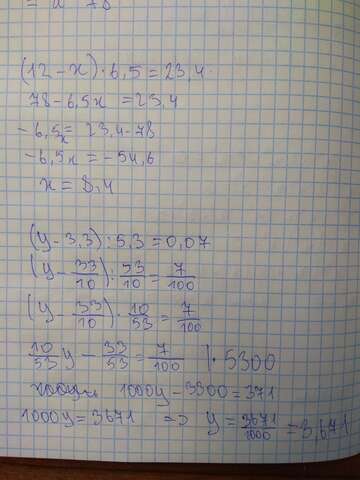 (12-x)·6,5=23,4
78-6,5x=23,4
-6,5x=23,4-78
-6,5x=-54,6
x=8,4
(y-3,3):5,3=0,07
(y-33/10):53/10=7/100
(y-33/10)·10/53=7/100
10/53y-33/53=7/100 |·5300
1000y-3300=371
1000y=3671 => y=3671/1000=3,671